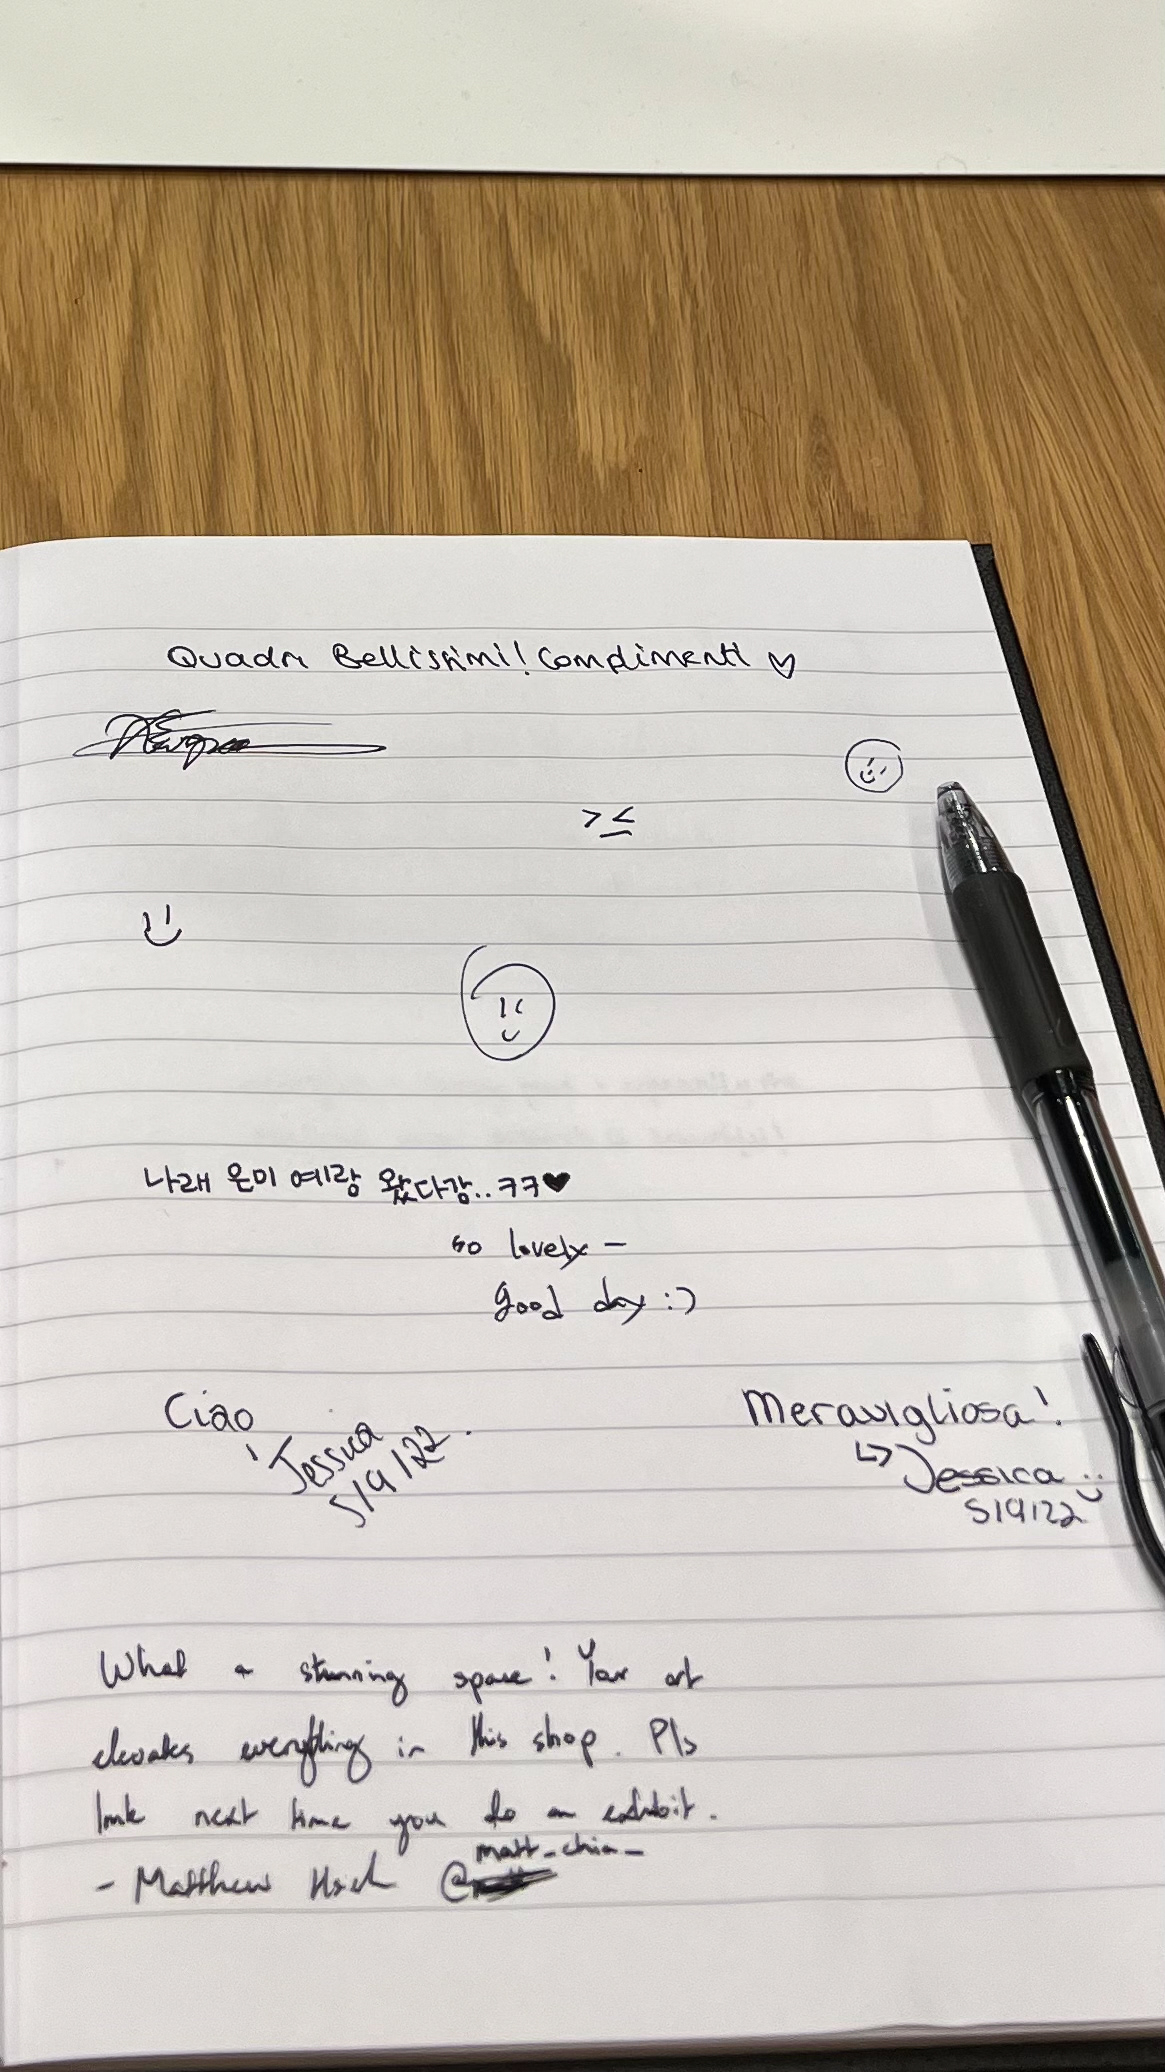 Quadri Bellissimi! Complimenti ♡
>_<
나래 은미 예랑 왔다강.. ㅋㅋ♥
so lovely –
good day :)
Ciao!
Jessica
5/9/22.
Meravigliosa!
↳ Jessica
5/9/22
What a stunning space! Your art
elevates everything in this shop. Pls
invite next time you do an exhibit.
- Matthew @matt_chia_